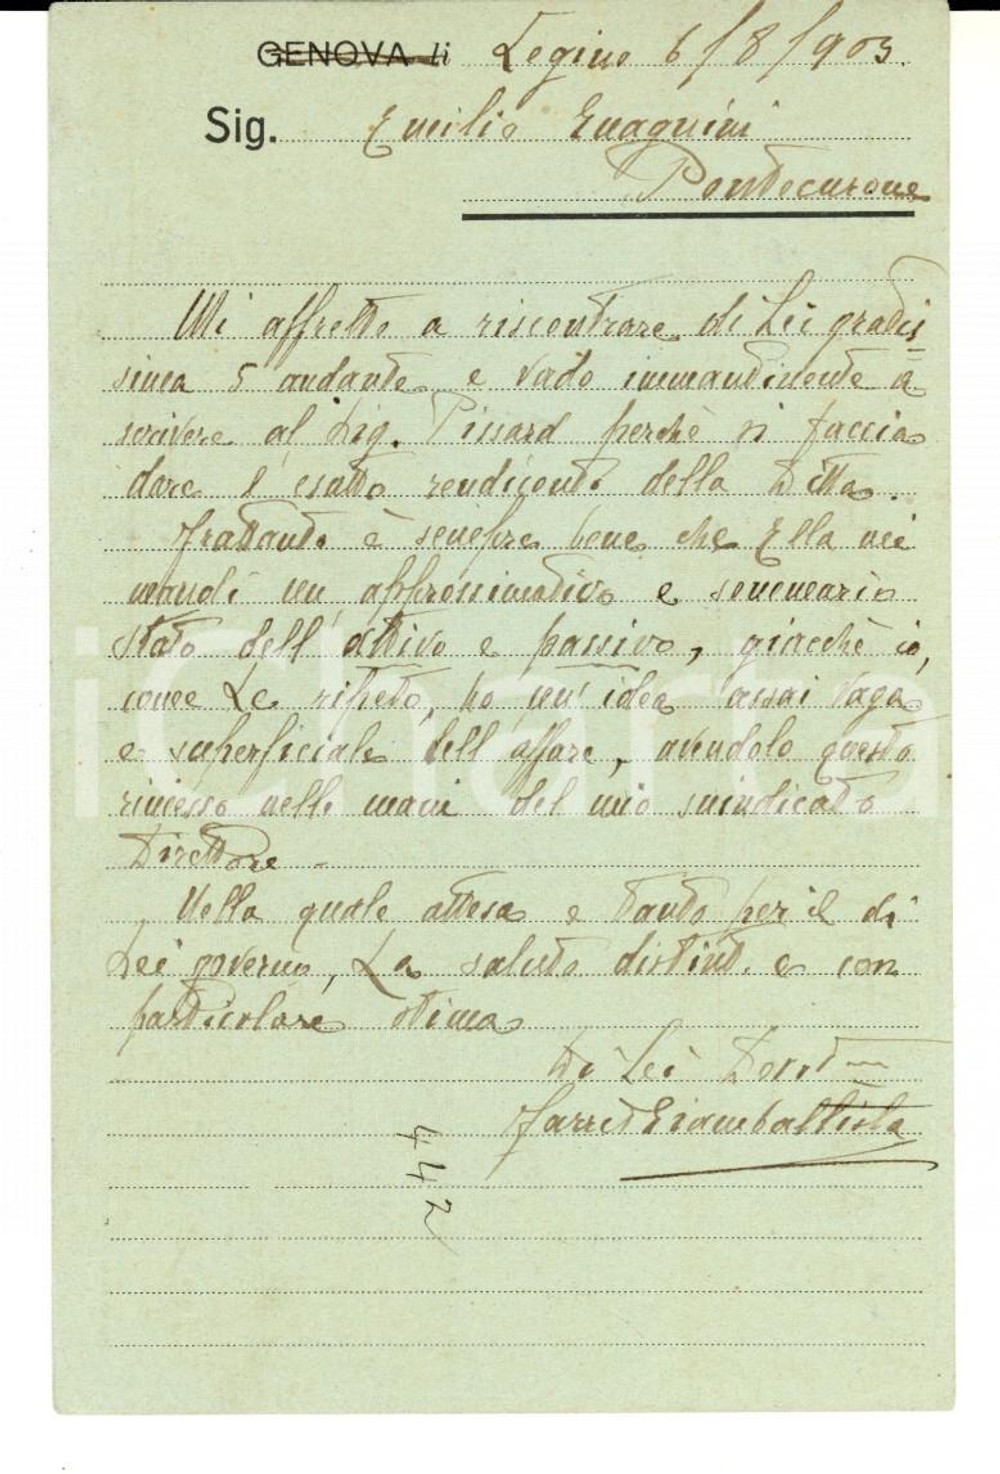 GENOVA li Legino 6/8/903.
Sig. Emilio Guagnini
Pontecurone
Mi affretto a riscontrare di Lei gradis
sima 5 andante e vado immantinente a
scrivere al Sig. Pissard perchè si faccia
dare l'esatto rendiconto della Ditta.
Frattanto è sempre bene che Ella mi
mandi un approssimativo e sommario
stato dell'attivo e passivo, giacchè io,
come Le ripeto, ho un'idea assai vaga
e superficiale dell'affare, avendolo questo
rimesso nelle mani del mio suindicato
Direttore -
Nella quale attesa e tanto per il di
Lei governo, La saluto distint. e con
particolare stima
Di Lei Devot
Giambattista
442
iCharta